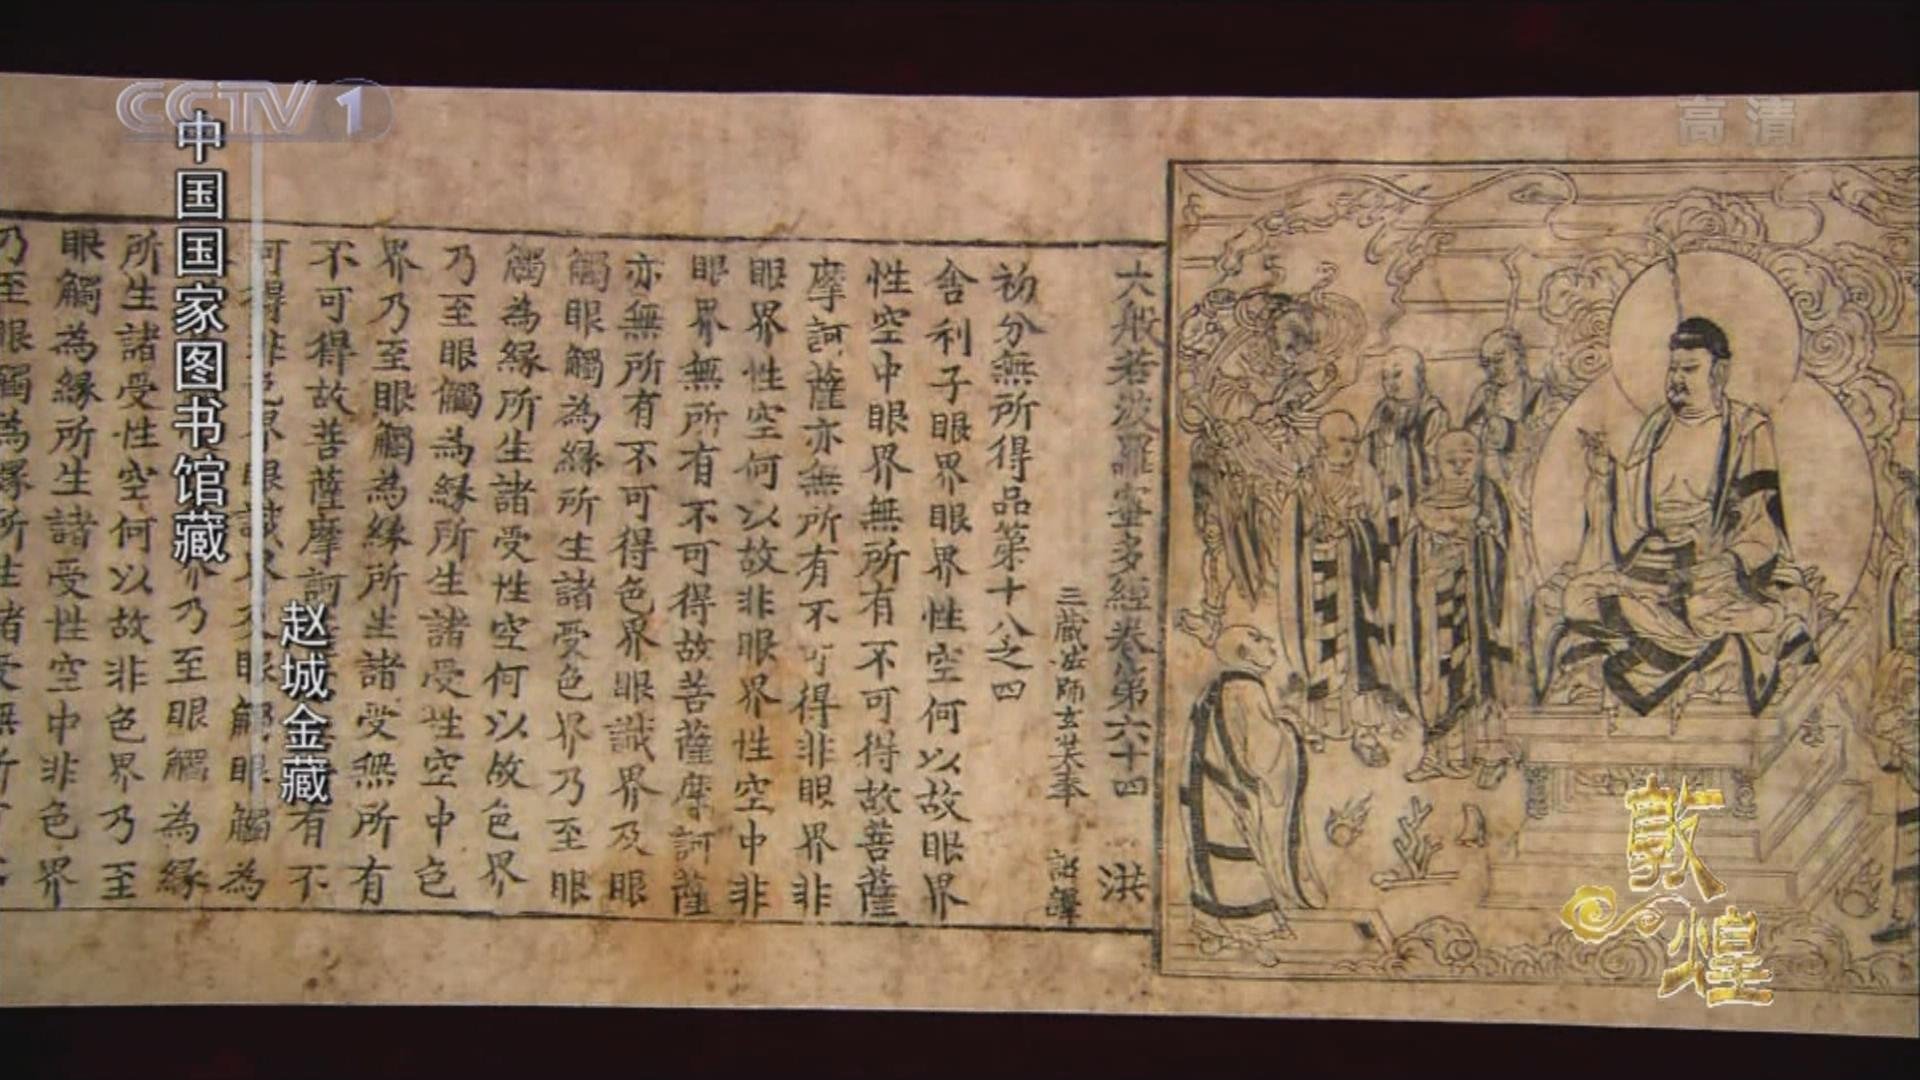 CCTV 1
高清
中国国家图书馆藏
赵城金藏
大般若波羅蜜多經卷第六十四 洪
三藏法師玄奘奉 詔譯
初分無所得品第十八之四
舍利子眼界眼界性空何以故眼界
性空中眼界無所有不可得故菩薩
摩訶薩亦無所有不可得非眼界非
眼界性空何以故非眼界性空中非
眼界無所有不可得故菩薩摩訶薩
亦無所有不可得色界眼識界及眼
觸眼觸為緣所生諸受色界乃至眼
觸為緣所生諸受性空何以故色界
乃至眼觸為緣所生諸受性空中色
界乃至眼觸為緣所生諸受無所有
不可得故菩薩摩訶有不
可得非色界眼識界及眼觸眼觸為
界乃至眼觸為緣
所生諸受性空何以故非色界乃至
眼觸為緣所生諸受性空中非色界
乃至眼觸為緣所生諸受無所
敦煌